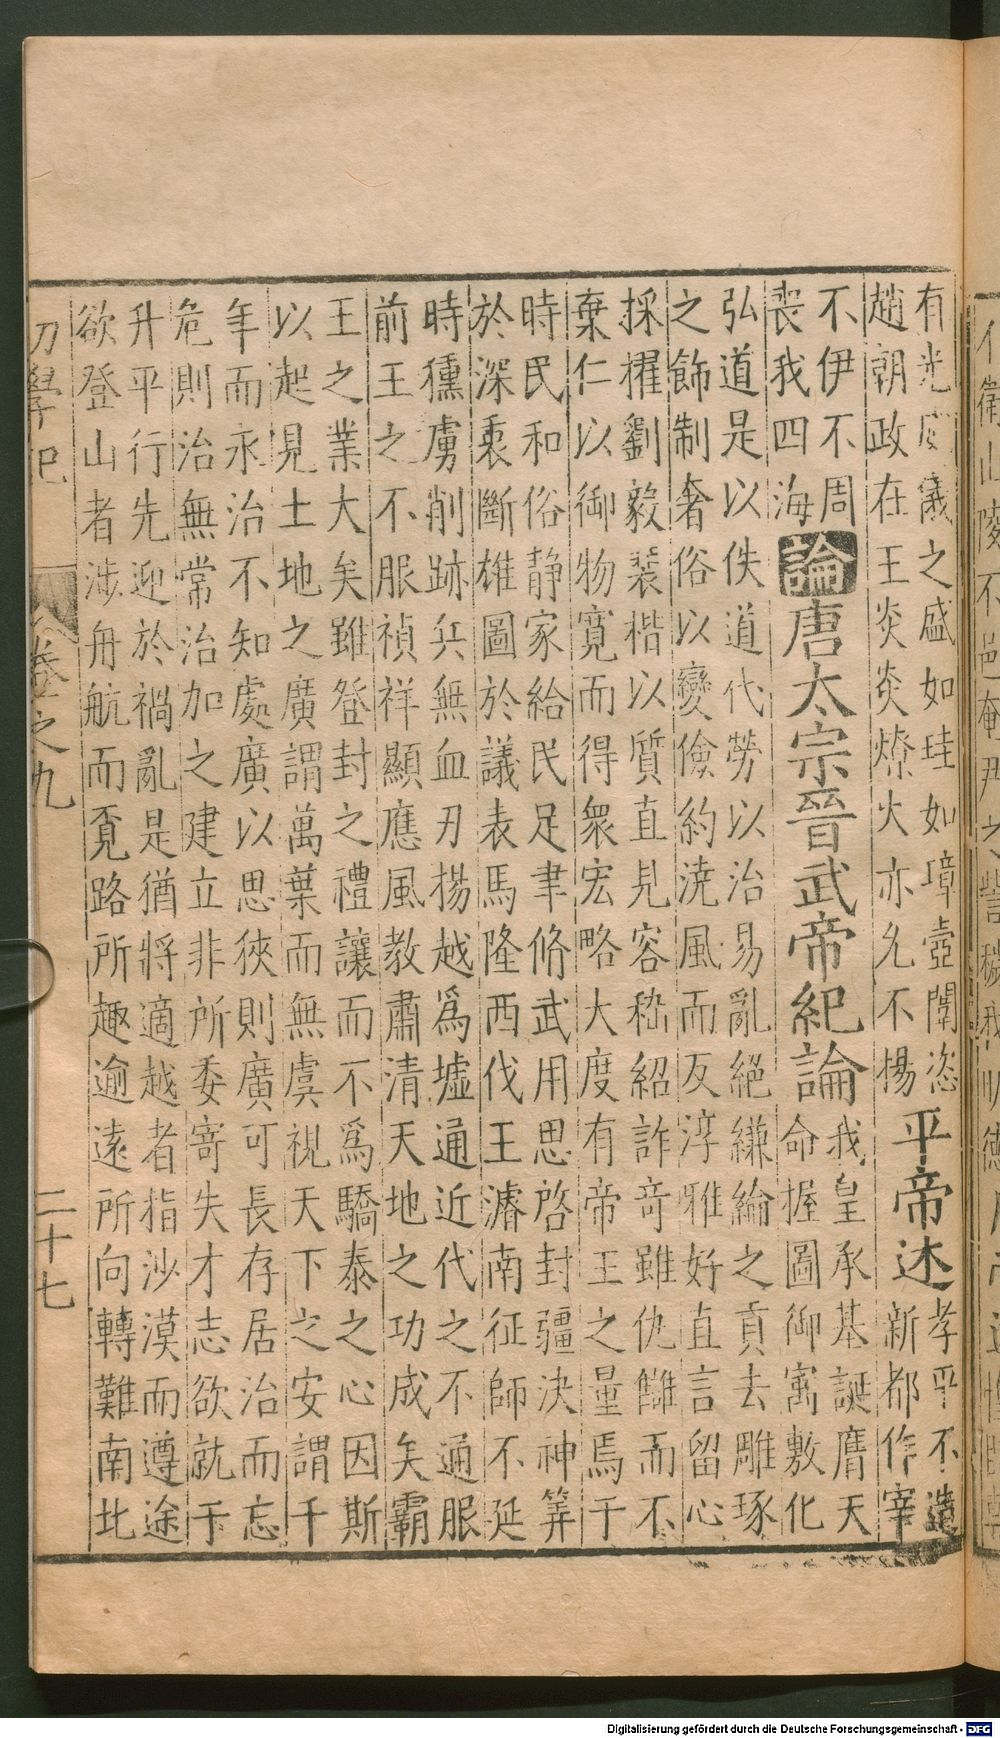 有光威儀之盛如珪如璋壺闈恣
趙朝政在王炎炎燎火亦允不揚
平帝述
孝平不造
新都作宰
不伊不周
丧我四海
論唐太宗晉武帝紀論
我皇承基誕膺天
命握圖御寓敷化
弘道是以佚道代勞以治易亂絕縑綸之貢去雕琢
之飾制奢俗以變儉約澆風而反淳雅好直言留心
採擢劉毅裴楷以質直見容嵇紹詐竒雖仇讎而不
棄仁以御物寛而得衆宏略大度有帝王之量焉于
時民和俗静家給民足聿脩武用思啓封疆決神筭
於深衷斷雄圖於議表馬隆西伐王濬南征師不延
時獯虜削跡兵無血刃揚越爲墟通近代之不通服
前王之不服禎祥顯應風教肅清天地之功成矣霸
王之業大矣雖登封之禮讓而不爲驕泰之心因斯
以起見土地之廣謂萬葉而無虞視天下之安謂千
年而永治不知處廣以思狹則廣可長存居治而忘
危則治無常治加之建立非所委寄失才志欲就于
升平行先迎於禍亂是猶將適越者指沙漠而遵途
欲登山者涉舟航而覓路所趣逾遠所向轉難南北
初學記 卷之九 二十七
Digitalisierung gefördert durch die Deutsche Forschungsgemeinschaft - DFG